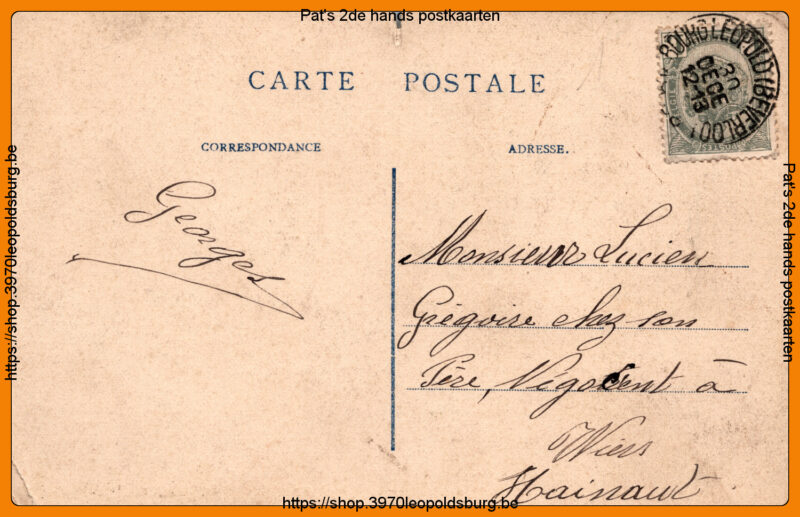 Pat's 2de hands postkaarten
CARTE POSTALE
BOURG-LEOPOLD (BEVERLOO)
30
DECE
12-13
CORRESPONDANCE
ADRESSE.
Georges
Monsieur Lucien
Grégoire chez son
Père, Négocient à
Wiers
Hainaut
https://shop.3970leopoldsburg.be
Pat's 2de hands postkaarten
https://shop.3970leopoldsburg.be